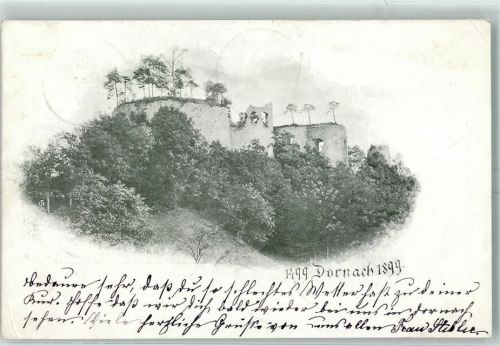 1499. Dornach 1899.
Bedaure sehr, daß du so schlechtes Wetter hast zu deiner
Kur. Hoffe daß wir dich bald wieder bei uns in dornach
sehen. Viele herzliche Grüße von uns allen Frau